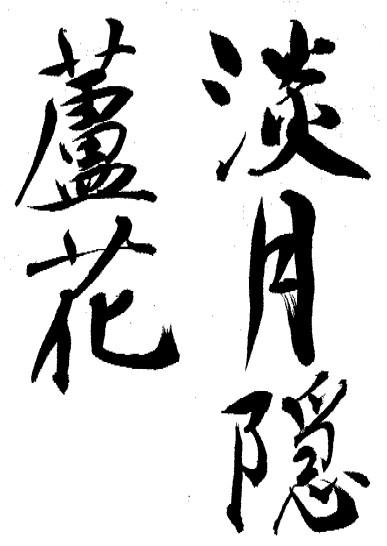 淡月隠
蘆花